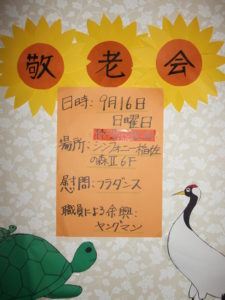 敬老会
日時：9月16日
日曜日
場所：シンフォニー稲佐
の森Ⅱ 6F
慰問：フラダンス
職員による余興：
ヤングマン